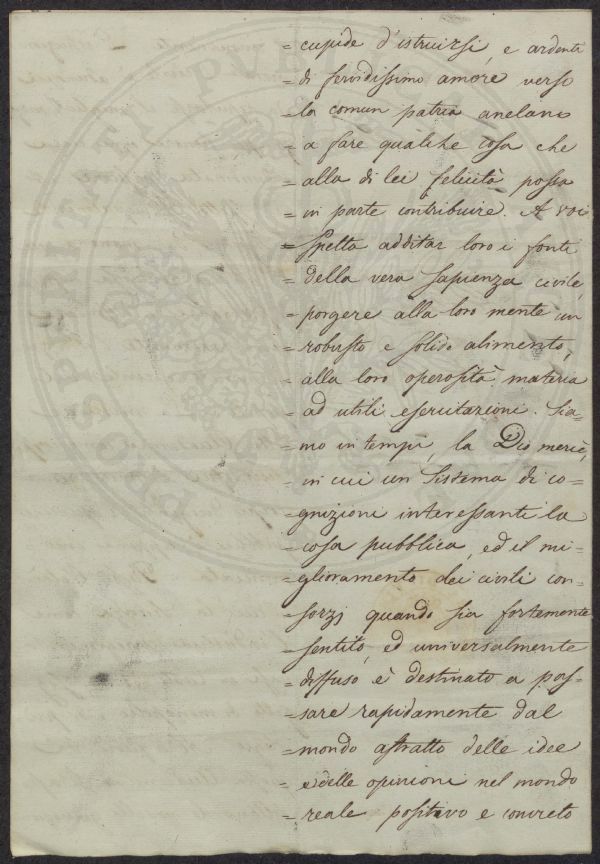 = cupide d'istruirsi, e ardenti
= di fervidissimo amore verso
= la comun patria anelano
= a fare qualche cosa che
= alla di lei felicità possa
= in parte contribuire. A voi
= spetta additar loro i fonti
= della vera sapienza civile,
= porgere alla loro mente un
= robusto e solido alimento,
= alla loro operosità materia
= ad utili esercitazioni. Sia=
= mo in tempi, la Dio mercè,
= in cui un sistema di co=
= gnizioni interessanti la
= cosa pubblica, ed il mi=
= glioramento dei civili con=
= sorzj quando sia fortemente
= sentito, ed universalmente
= diffuso è destinato a pas=
= sare rapidamente dal
= mondo astratto delle idee
= e delle opinioni nel mondo
= reale positivo e concreto